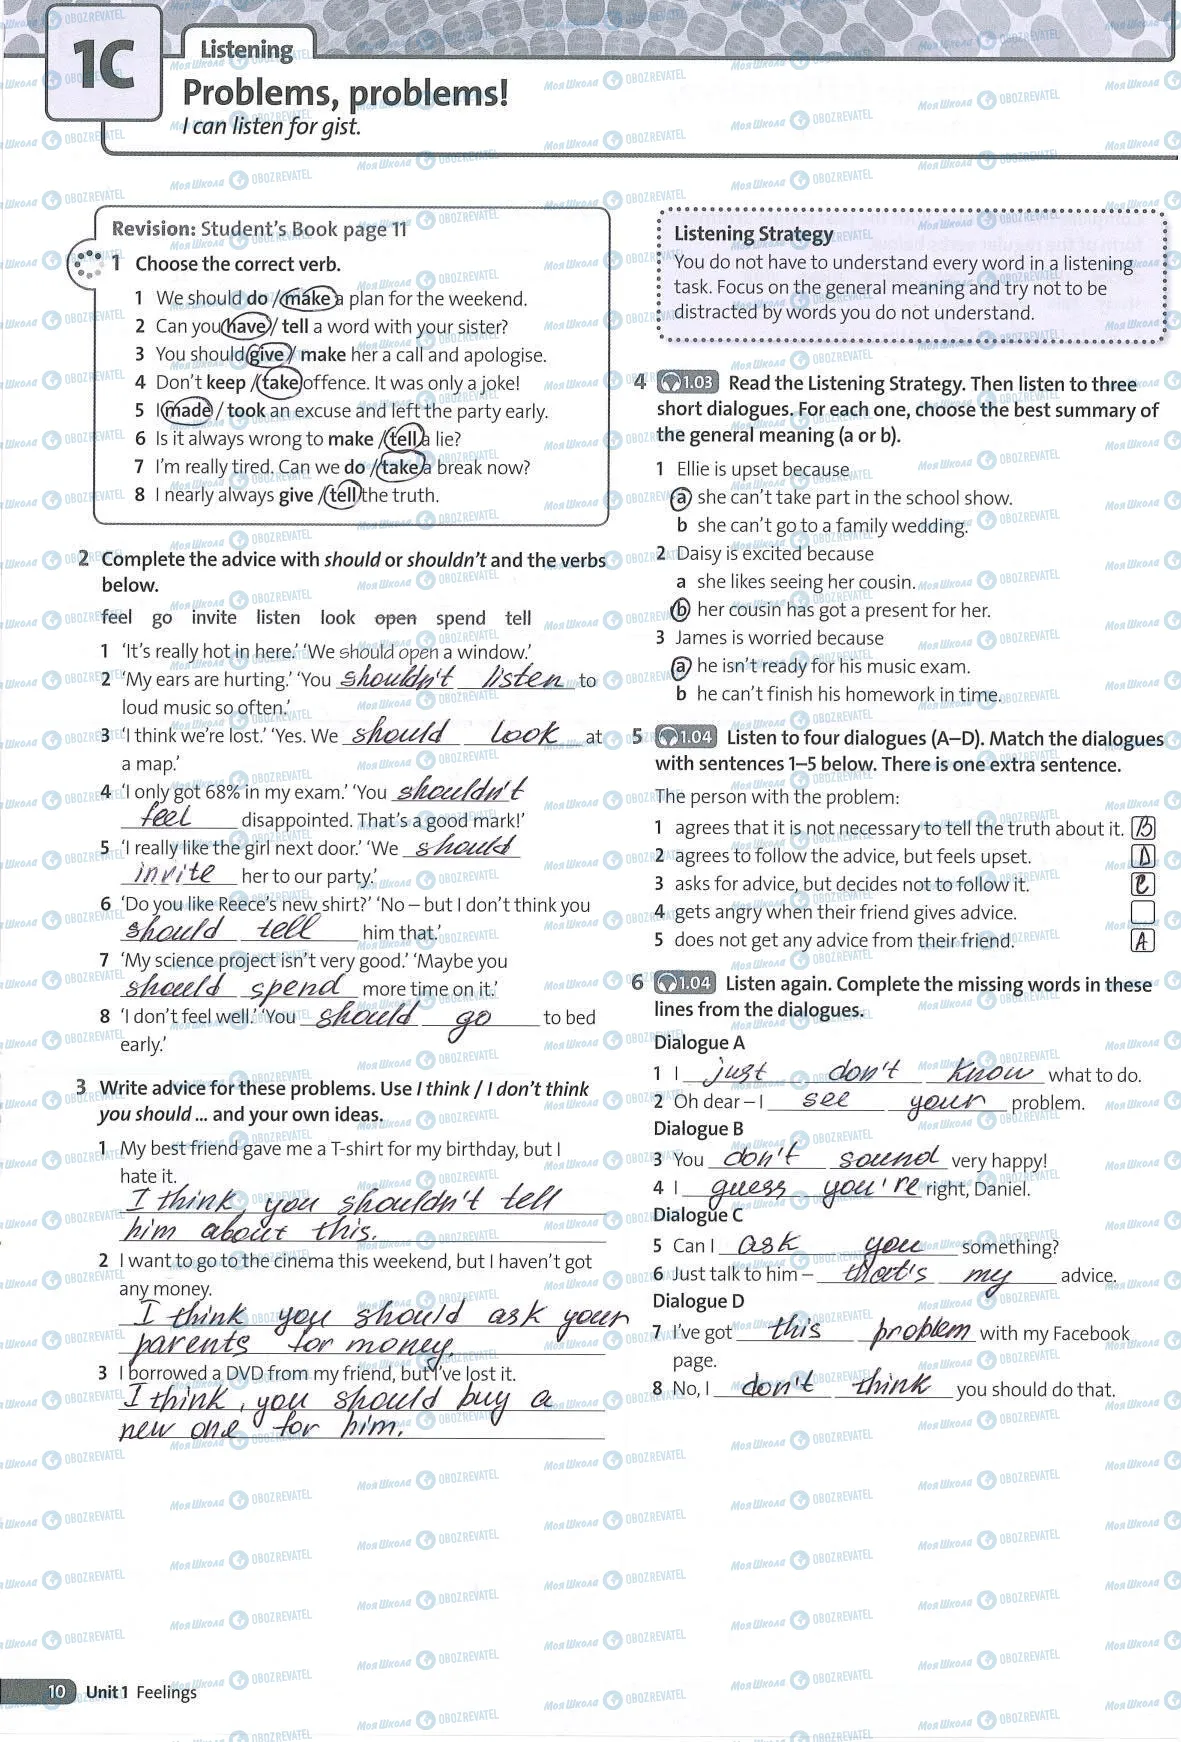 1C
Listening
Problems, problems!
I can listen for gist.
Revision: Student's Book page 11
1 Choose the correct verb.
1 We should do / make a plan for the weekend.
2 Can you have / tell a word with your sister?
3 You should give / make her a call and apologise.
4 Don't keep / take offence. It was only a joke!
5 I made / took an excuse and left the party early.
6 Is it always wrong to make / tell a lie?
7 I'm really tired. Can we do / take a break now?
8 I nearly always give / tell the truth.
2 Complete the advice with should or shouldn't and the verbs
below.
feel go invite listen look open spend tell
1 'It's really hot in here.' 'We should open a window.'
2 'My ears are hurting.' 'You shouldn't listen to
loud music so often.'
3 'I think we're lost.' 'Yes. We should look at
a map.'
4 'I only got 68% in my exam.' 'You shouldn't
feel disappointed. That's a good mark!'
5 'I really like the girl next door.' 'We should
invite her to our party.'
6 'Do you like Reece's new shirt?' 'No – but I don't think you
should tell him that.'
7 'My science project isn't very good.' 'Maybe you
should spend more time on it.'
8 'I don't feel well.' 'You should go to bed
early.'
3 Write advice for these problems. Use I think / I don't think
you should ... and your own ideas.
1 My best friend gave me a T-shirt for my birthday, but I
hate it.
I think, you shouldn't tell
him about this.
2 I want to go to the cinema this weekend, but I haven't got
any money.
I think you should ask your
parents for money.
3 I borrowed a DVD from my friend, but I've lost it.
I think, you should buy a
new one for him.
Listening Strategy
You do not have to understand every word in a listening
task. Focus on the general meaning and try not to be
distracted by words you do not understand.
4 1.03 Read the Listening Strategy. Then listen to three
short dialogues. For each one, choose the best summary of
the general meaning (a or b).
1 Ellie is upset because
a she can't take part in the school show.
b she can't go to a family wedding.
2 Daisy is excited because
a she likes seeing her cousin.
b her cousin has got a present for her.
3 James is worried because
a he isn't ready for his music exam.
b he can't finish his homework in time.
5 1.04 Listen to four dialogues (A–D). Match the dialogues
with sentences 1–5 below. There is one extra sentence.
The person with the problem:
1 agrees that it is not necessary to tell the truth about it. B
2 agrees to follow the advice, but feels upset. D
3 asks for advice, but decides not to follow it. C
4 gets angry when their friend gives advice.
5 does not get any advice from their friend. A
6 1.04 Listen again. Complete the missing words in these
lines from the dialogues.
Dialogue A
1 I just don't know what to do.
2 Oh dear – I see your problem.
Dialogue B
3 You don't sound very happy!
4 I guess you're right, Daniel.
Dialogue C
5 Can I ask you something?
6 Just talk to him – that's my advice.
Dialogue D
7 I've got this problem with my Facebook
page.
8 No, I don't think you should do that.
10 Unit 1 Feelings
МояШкола OBOZREVATEL